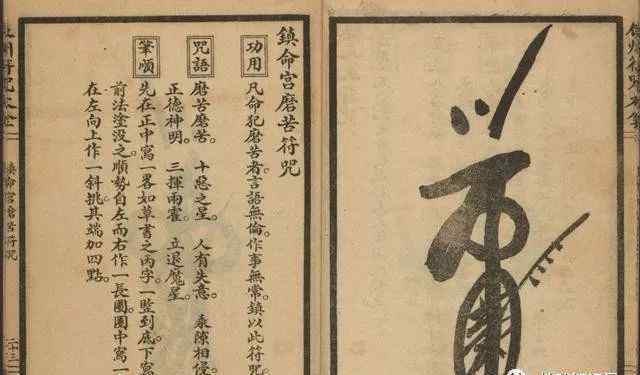 鎮命宮磨苦符咒
功用
凡命犯磨苦者。言語無倫。作事無常。鎮以此符咒。
咒語
磨苦磨苦。 十惡之星 人有失意。 乘隙相侵。
正德神明。 三揮雨霍。 立退魔星。
筆順
先在正中寫一畧如草書之丙字。一監到底。下寫
前法塗没之。順勢自左而右作一長圈。圈中寫一
在左向上作一斜挑。其端加四點。
鎮命宮磨苦符咒
二十三